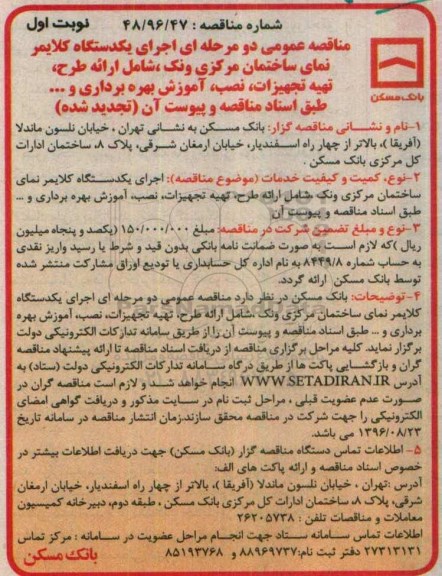 شماره مناقصه : ۴۸/۹۶/۴۷
نوبت اول
بانک مسکن
مناقصه عمومی دو مرحله ای اجرای یکدستگاه کلایمر
نمای ساختمان مرکزی ونک ،شامل ارائه طرح،
تهیه تجهیزات، نصب، آموزش بهره برداری و ...
طبق اسناد مناقصه و پیوست آن (تجدید شده)
۱-نام و نشانی مناقصه گزار: بانک مسکن به نشانی تهران ، خیابان نلسون ماندلا
(آفریقا )، بالاتر از چهار راه اسفندیار، خیابان ارمغان شرقی، پلاک ۸، ساختمان ادارات
کل مرکزی بانک مسکن .
۲-نوع، کمیت و کیفیت خدمات (موضوع مناقصه): اجرای یکدستگاه کلایمر نمای
ساختمان مرکزی ونک ،شامل ارائه طرح، تهیه تجهیزات، نصب، آموزش بهره برداری و ...
طبق اسناد مناقصه و پیوست آن
۳-نوع و مبلغ تضمین شرکت در مناقصه: مبلغ ۱۵۰/۰۰۰/۰۰۰ (یکصد و پنجاه میلیون
ریال )که لازم است به صورت ضمانت نامه بانکی بدون قید و شرط یا رسید واریز نقدی
به حساب شماره ۸۴۴۹/۸ به نام اداره کل حسابداری یا تودیع اوراق مشارکت منتشر شده
توسط بانک مسکن ارائه گردد.
۴-توضیحات: بانک مسکن در نظر دارد مناقصه عمومی دو مرحله ای اجرای یکدستگاه
کلایمر نمای ساختمان مرکزی ونک ،شامل ارائه طرح، تهیه تجهیزات، نصب، آموزش بهره
برداری و ... طبق اسناد مناقصه و پیوست آن را از طریق سامانه تدارکات الکترونیکی دولت
برگزار نماید. کلیه مراحل برگزاری مناقصه از دریافت اسناد مناقصه تا ارائه پیشنهاد مناقصه
گران و بازگشایی پاکت ها از طریق درگاه سامانه تدارکات الکترونیکی دولت (ستاد) به
آدرس WWW.SETADIRAN.IR انجام خواهد شد و لازم است مناقصه گران در
صورت عدم عضویت قبلی ، مراحل ثبت نام در سایت مذکور و دریافت گواهی امضای
الکترونیکی را جهت شرکت در مناقصه محقق سازند.زمان انتشار مناقصه در سامانه تاریخ
۱۳۹۶/۰۸/۲۳ می باشد.
۵- اطلاعات تماس دستگاه مناقصه گزار (بانک مسکن) جهت دریافت اطلاعات بیشتر در
خصوص اسناد مناقصه و ارائه پاکت های الف:
آدرس :تهران ، خیابان نلسون ماندلا (آفریقا )، بالاتر از چهار راه اسفندیار، خیابان ارمغان
شرقی، پلاک ۸، ساختمان ادارات کل مرکزی بانک مسکن ، طبقه دوم، دبیرخانه کمیسیون
معاملات و مناقصات تلفن : ۲۶۲۰۵۷۳۸
اطلاعات تماس سامانه ستاد جهت انجام مراحل عضویت در سامانه : مرکز تماس
۲۷۳۱۳۱۳۱ دفتر ثبت نام:۸۸۹۶۹۷۳۷ و ۸۵۱۹۳۷۶۸
بانک مسکن